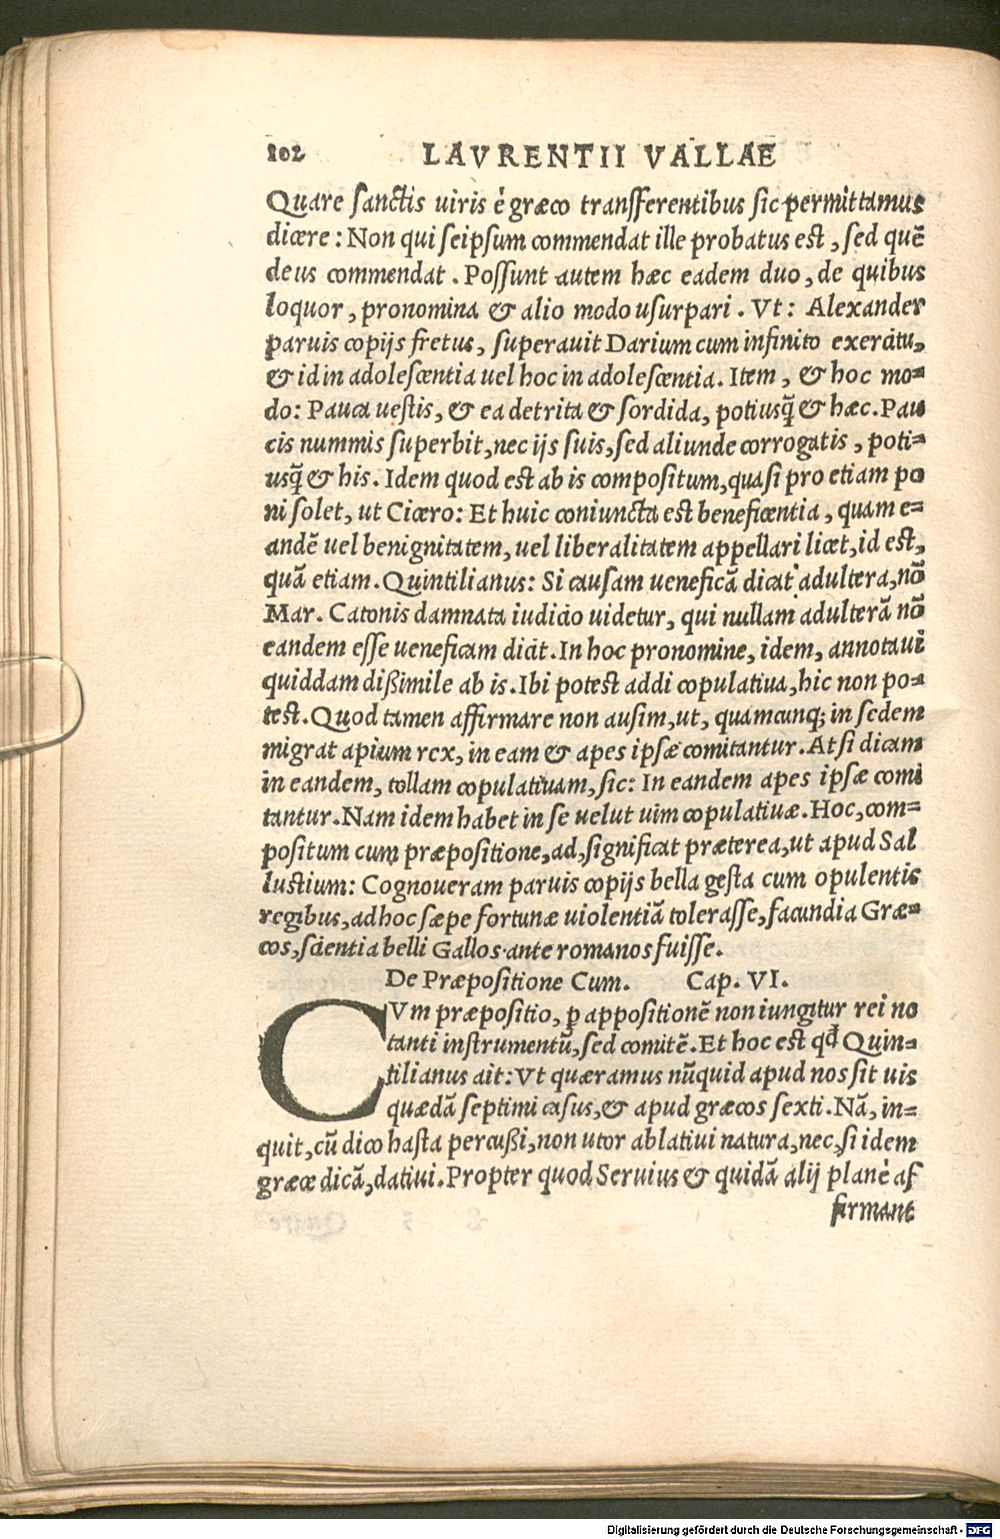 102 LAVRENTII VALLAE
Quare sanctis uiris è græco transferentibus sic permittamus
dicere: Non qui seipsum commendat ille probatus est, sed quẽ
deus commendat. Possunt autem hæc eadem duo, de quibus
loquor, pronomina & alio modo usurpari. Vt: Alexander
paruis copijs fretus, superauit Darium cum infinito exercitu,
& id in adolescentia uel hoc in adolescentia. Item, & hoc mo=
do: Pauca uestis, & ea detrita & sordida, potiusq̃ & hæc. Pau
cis nummis superbit, nec ijs suis, sed aliunde corrogatis, poti=
usq̃ & his. Idem quod est ab is compositum, quasi pro etiam po
ni solet, ut Cicero: Et huic coniuncta est beneficentia, quam e=
andẽ uel benignitatem, uel liberalitatem appellari licet, id est,
quã etiam. Quintilianus: Si causam ueneficã dicat adultera, nõ
Mar. Catonis damnata iudicio uidetur, qui nullam adulterã nõ
eandem esse ueneficam dicit. In hoc pronomine, idem, annotaui
quiddam dißimile ab is. Ibi potest addi copulatiua, hic non po=
test. Quod tamen affirmare non ausim, ut, quamcunq; in sedem
migrat apium rex, in eam & apes ipsæ comitantur. At si dicam
in eandem, tollam copulatiuam, sic: In eandem apes ipsæ comi
tantur. Nam idem habet in se uelut uim copulatiuæ. Hoc, com=
positum cum præpositione, ad, significat præterea, ut apud Sal
lustium: Cognoueram paruis copijs bella gesta cum opulentis
regibus, ad hoc sæpe fortunæ uiolentiã tolerasse, facundia Græ=
cos, scientia belli Gallos ante romanos fuisse.
De Præpositione Cum. Cap. VI.
CVm præpositio, ꝑ appositionẽ non iungitur rei no
tanti instrumentũ, sed comitẽ. Et hoc est qd̃ Quin=
tilianus ait: Vt quæramus nũquid apud nos sit uis
quædã septimi casus, & apud græcos sexti. Nã, in=
quit, cũ dico hasta percußi, non utor ablatiui natura, nec, si idem
græce dicã, datiui. Propter quod Seruius & quidã alij planè af
firmant
Digitalisierung gefördert durch die Deutsche Forschungsgemeinschaft - DFG